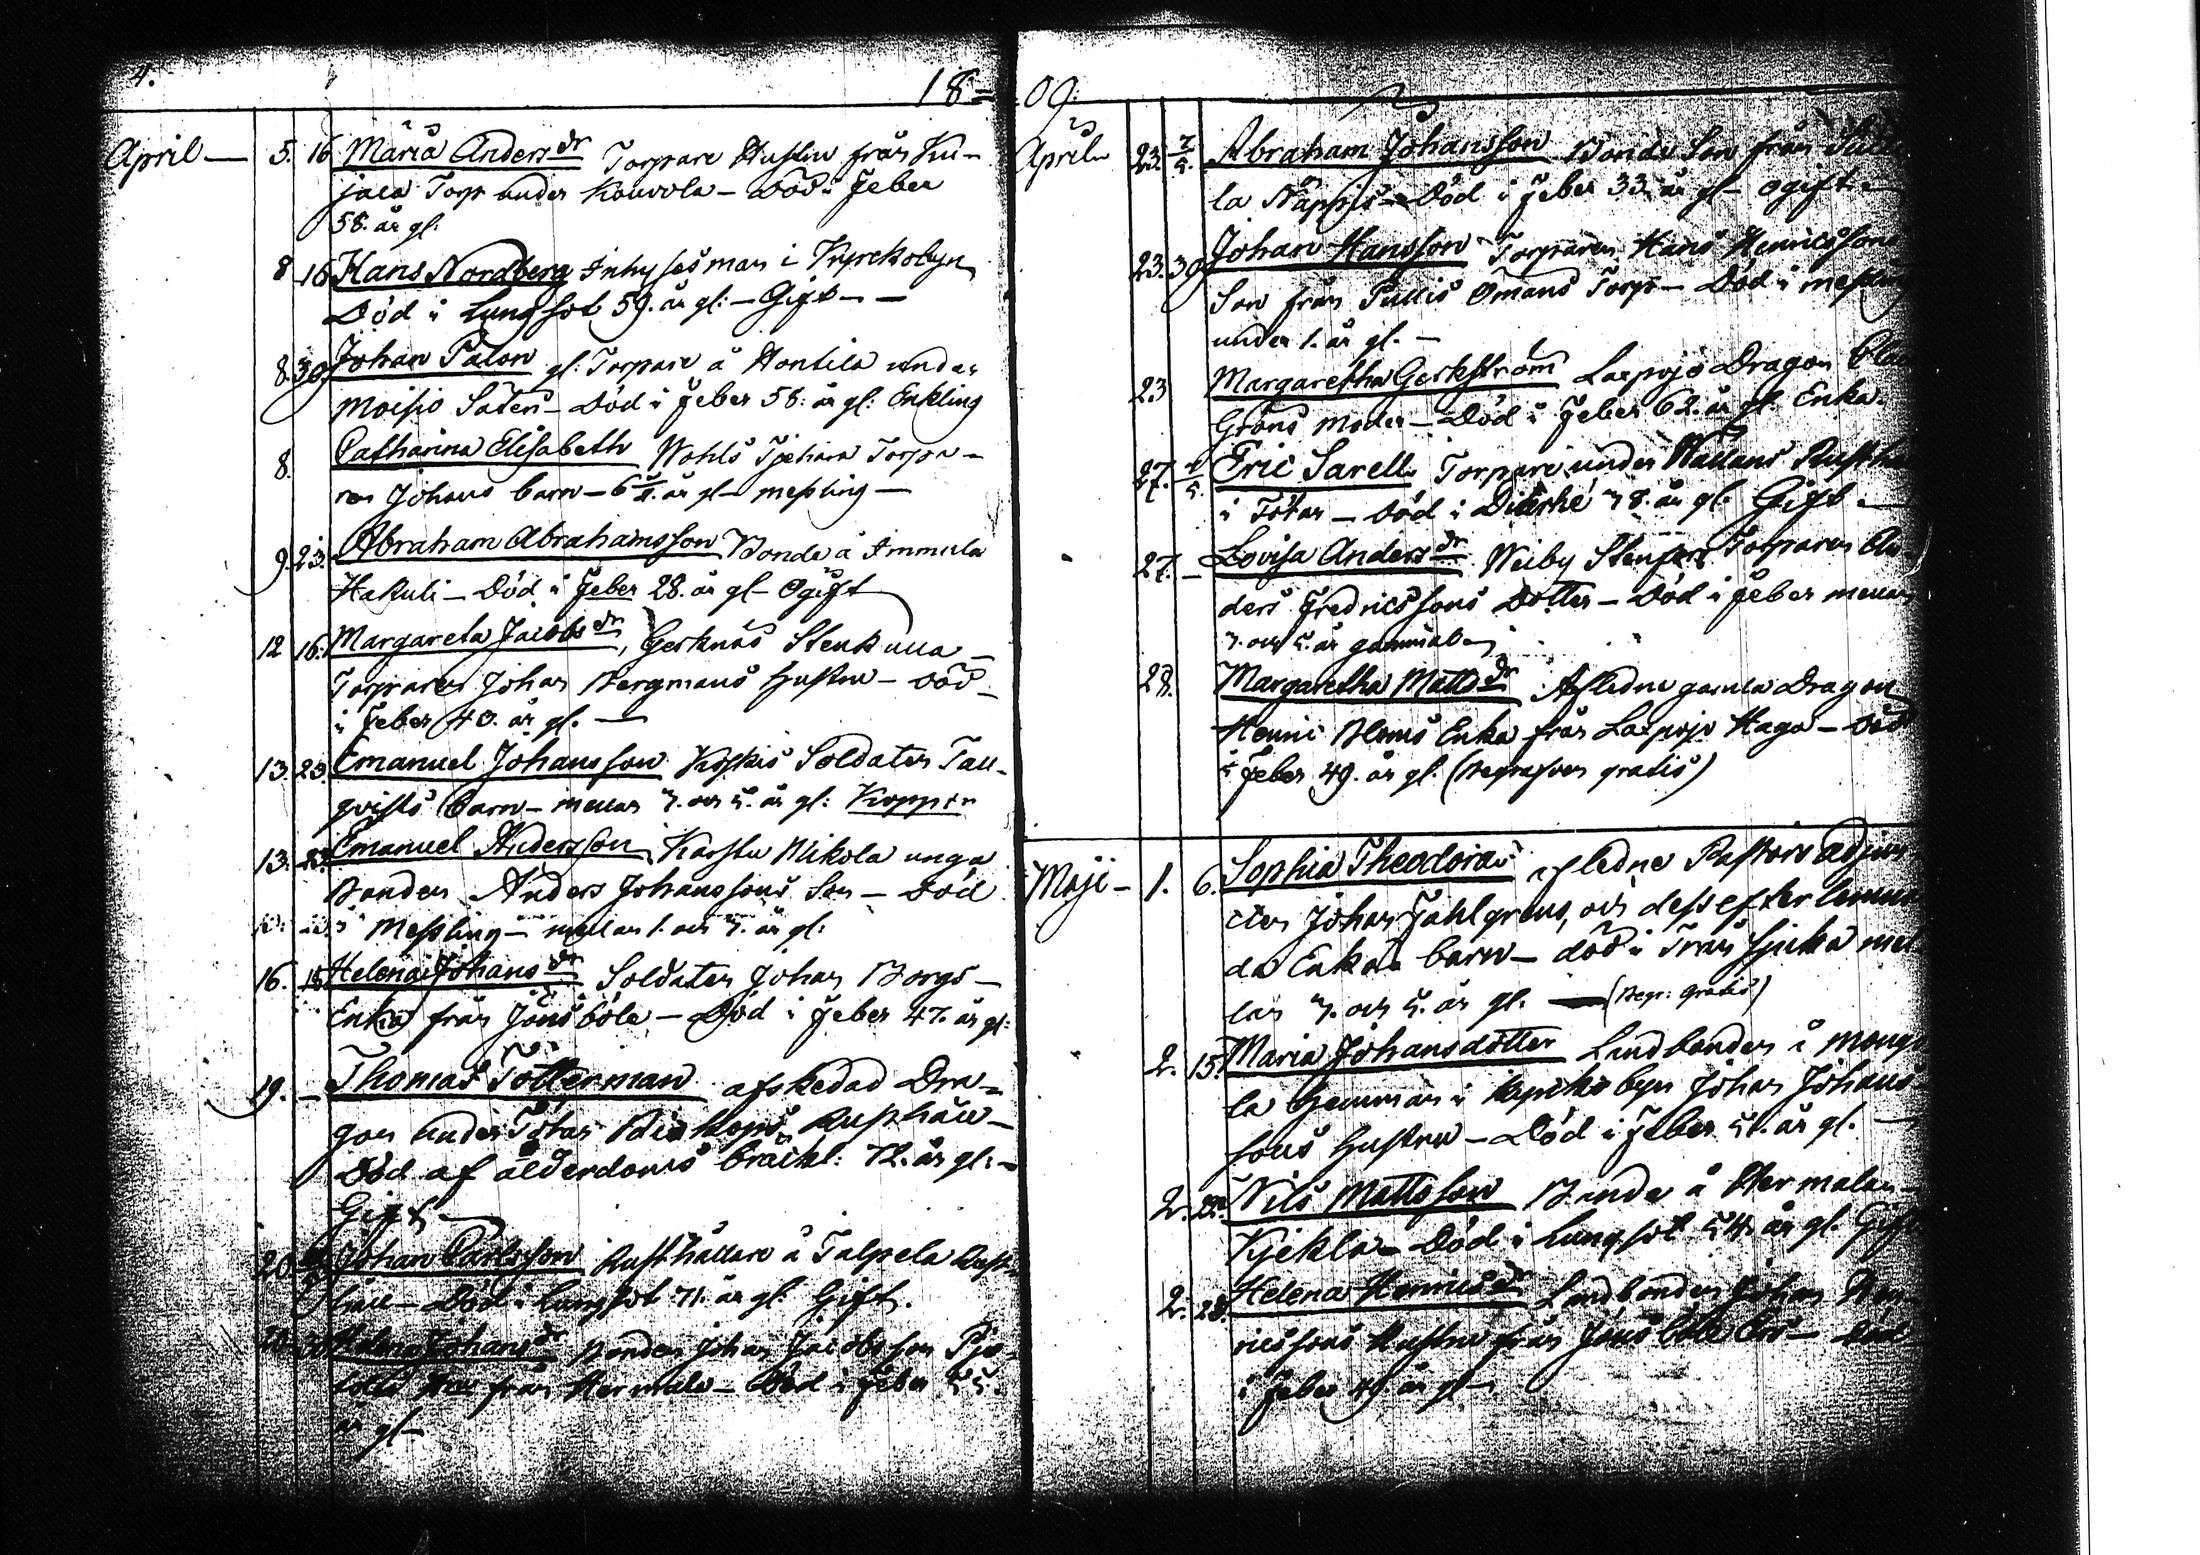 4.
18=
April — 5. 16 Maria Andersdr Torpare Hustru från Ku-
jala Torp under Kouvola — Död i Feber
58. år gl:
8 16 Hans Nordberg Inhysesman i Kyrckobyn
Död i Lungsot 59. år gl: — Gift — —
8. 30 Johan Palon gl: Torpare å Hontila under
Moisio Säteri — Död i Feber 58. år gl: Enkling
8. Catharina Elisabeth Wohls Tjehara Torpa-
ren Johans barn — 6 år gl — messling —
9. 23. Abraham Abrahamsson Bonde å Immula
Hakuli — Död i Feber 28. år gl — Ogift
12 16. Margareta Jacobsdr, Gerknäs Stenkulla
Torparen Johan Bergmans Hustru — Död
i Feber 40. år gl. —
13. 23. Emanuel Johansson Koskis Soldaten Tall-
qvists barn — mellan 3. och 5. år gl: Koppor
13. 23. Emanuel Andersson Karstu Nikola unga
Bonden Anders Johanssons Son — Död
i Messling — mellan 1. och 3. år gl:
16. Helena Johansdr Soldaten Johan Borgs
Enka från Jönsböle — Död i Feber 47. år gl:
19. — Thomas Tötterman afskedad Dra-
gon under Tötar Biskops Rusthåll —
Död af ålderdoms bräckl: 72. år gl: —
Gift —
20. Johan Carlsson Rusthållare å Talpela Rust-
håll — Död i Lungsot 71. år gl: Gift.
Helena Johansdr Bonden Johan Jacobsson
från Hermala — Död i Feber 55.
år gl —
09.
April 23. 7/5. Abraham Johansson Bonde Son från
la Näppis — Död i Feber 33. år gl — ogift —
23. 30 Johan Hansson Torparen Hans Henricssons
Son från Pullis Ömans Torp — Död i messling
under 1. år gl. —
23 Margaretha Gerkström Laxpojo Dragon
Gröns Moder — Död i Feber 62. år gl: Enka
27. 7/5. Eric Sarell Torpare under Wallans Rusthå
i Tötar — Död i 78. år gl: Gift —
27. — Lovisa Andersdr Weiby Stenfors Torparen An-
ders Fredricssons Dotter — Död i Feber mellan
3. och 5. år gammal —
28. Margaretha Mattsdr Afledne gamla Dragon
Henric Bloms Enka från Laxpojo Haga — Död
i Feber 49. år gl. (Begrafven gratis)
Maji — 1. 6. Sophia Theodora afledne Pastors Adjun-
cten Johan Fahlgrens, och dess efterlemna
da Enkas barn — död i Tvin Sjuka mel
lan 3. och 5. år gl. — (Begr: gratis)
2. 15. Maria Johansdotter Landbonden å Monga
la Hemman i Kyrko byn Johan Johans
sons Hustru — Död i Feber 51. år gl. —
2. Nils Mattsson Bonde å Hermala
Kjekla — Död i Lungsot 54. år gl. Gift
2. 28. Helena Henricsdr Landbonden Johan Hen-
ricssons Hustru från Jönsböle — Död
i Feber 49. år gl —